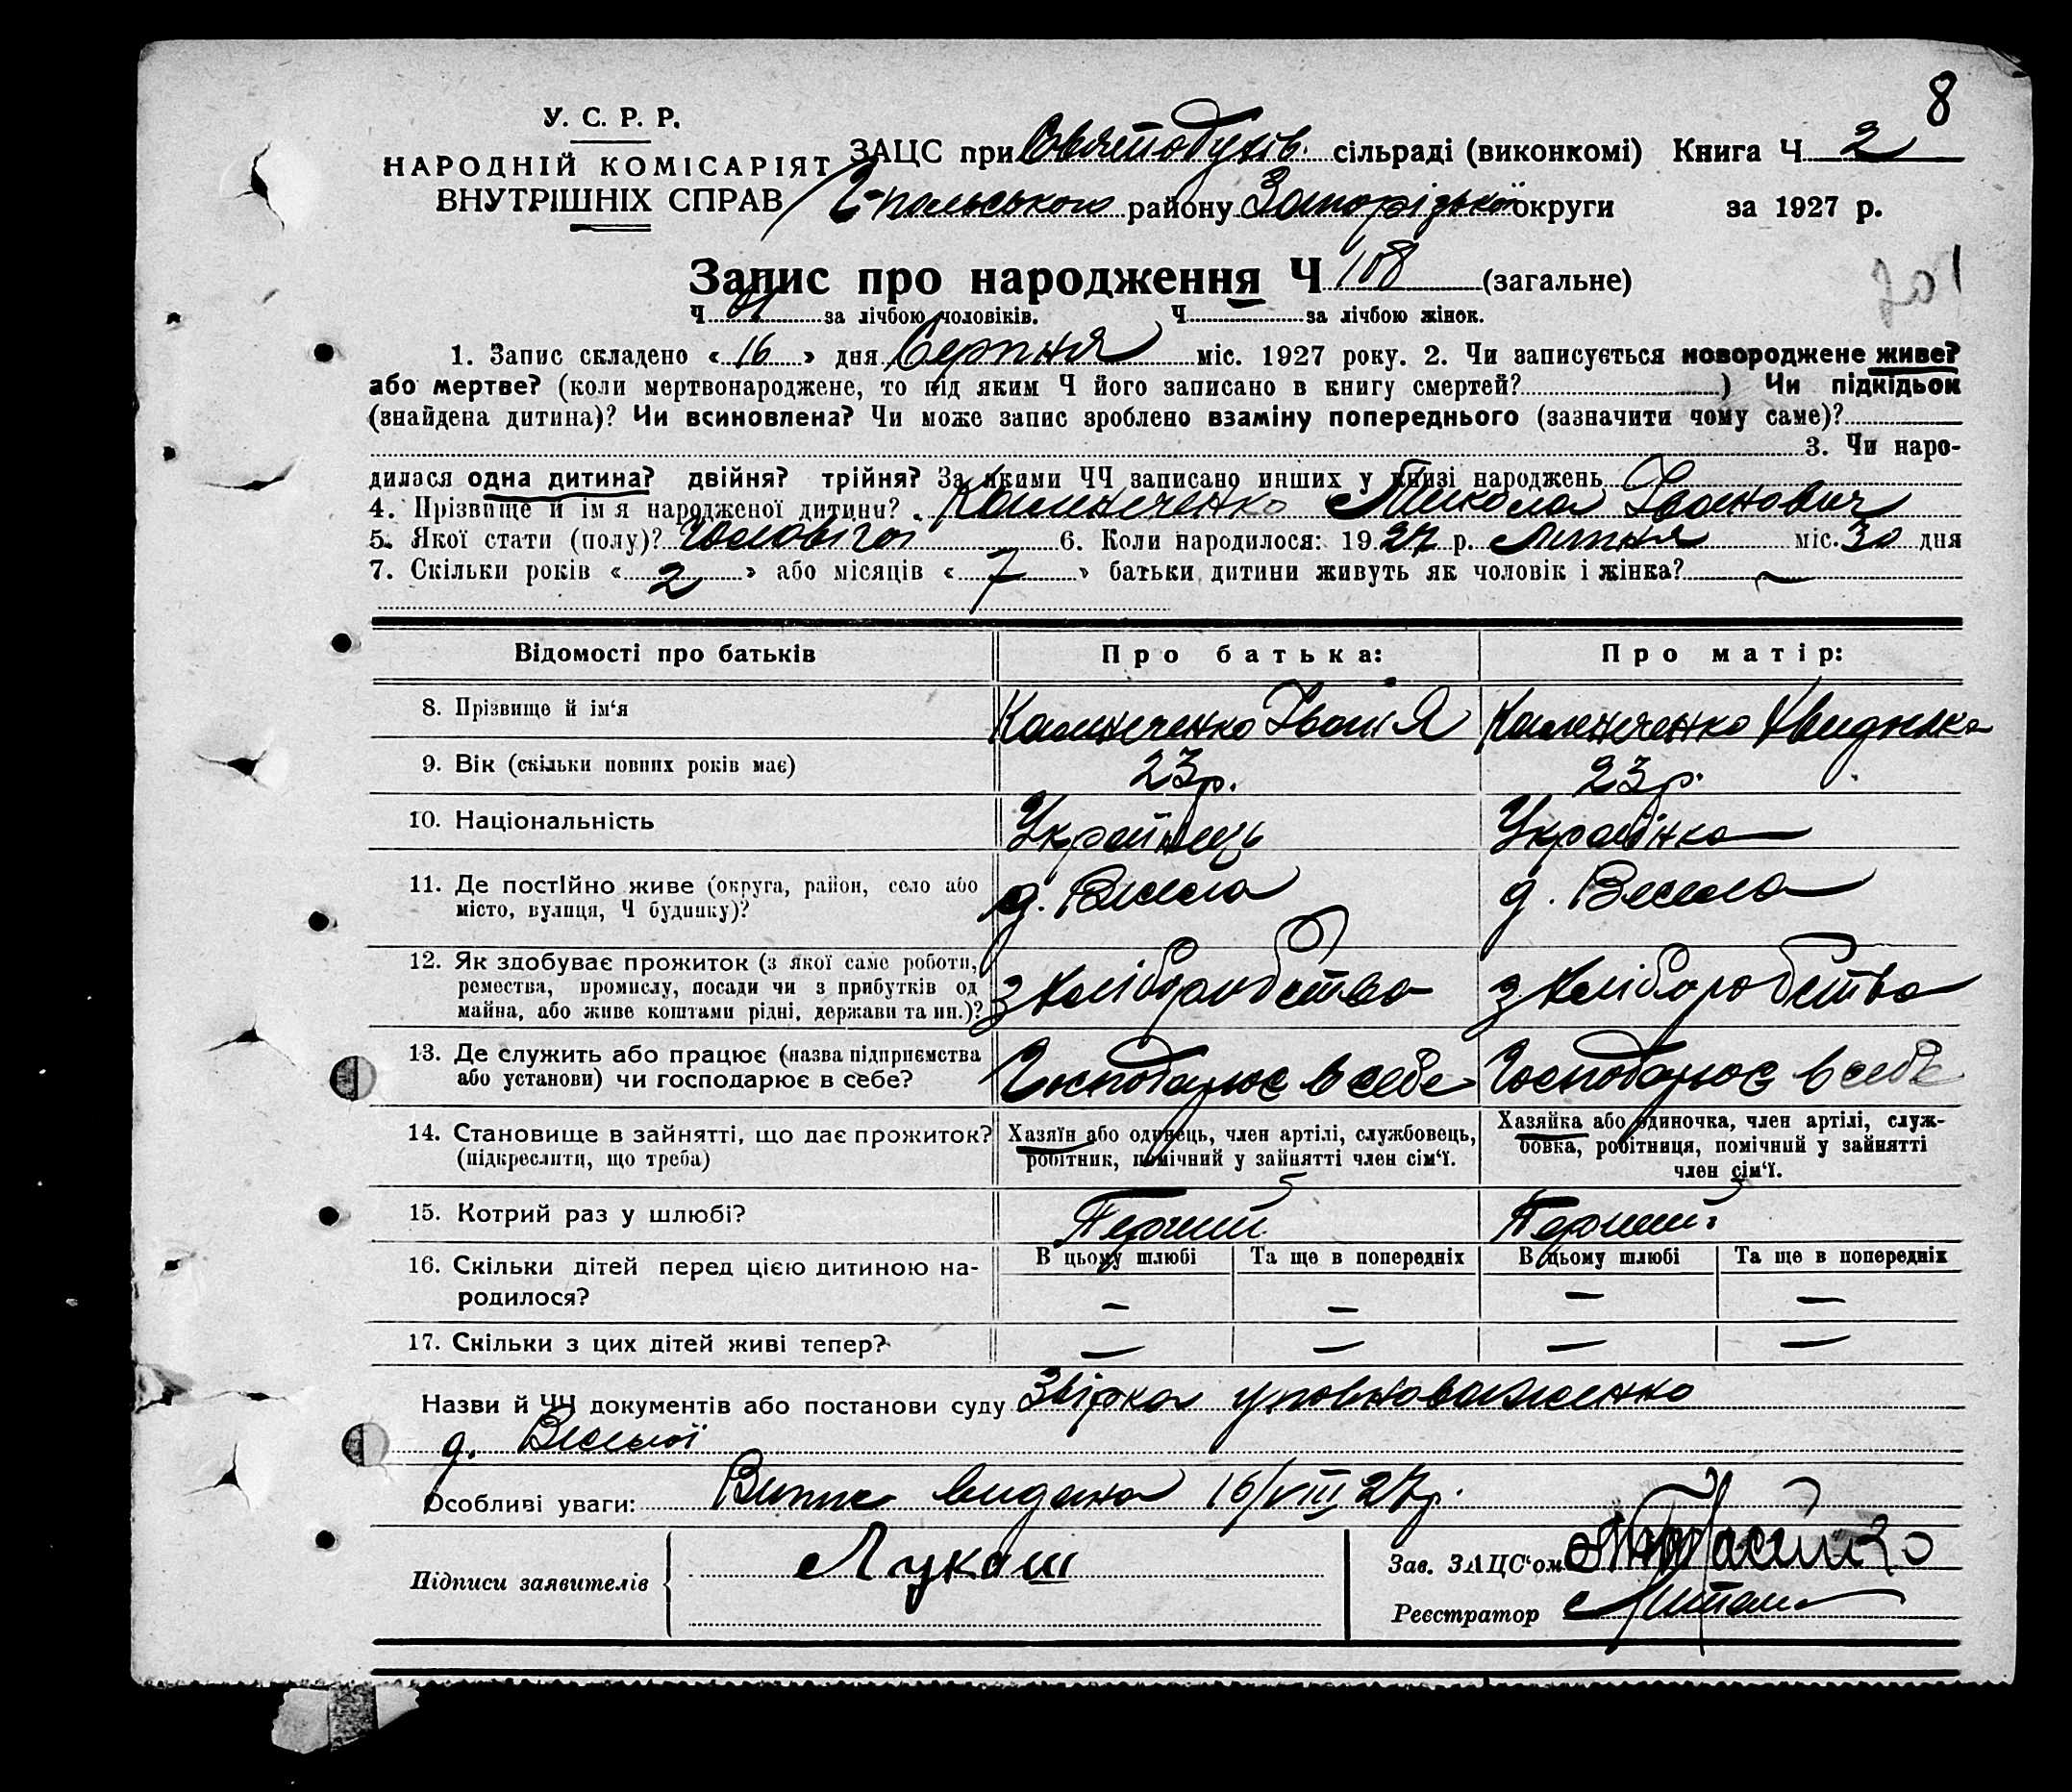 8
У. С. Р. Р.
НАРОДНІЙ КОМІСАРІЯТ
ВНУТРІШНІХ СПРАВ
ЗАЦС при Святодухів. сільраді (виконкомі) Книга Ч 2
Г-польського району Запорізької округи за 1927 р.
Запис про народження Ч 108 (загальне)
Ч за лічбою чоловіків. Ч за лічбою жінок.
1. Запис складено « 16 » дня Серпня міс. 1927 року. 2. Чи записується новороджене живе?
або мертве? (коли мертвонароджене, то під яким Ч його записано в книгу смертей?) Чи підкідьок
(знайдена дитина)? Чи всиновлена? Чи може запис зроблено взаміну попереднього (зазначити чому саме)?
3. Чи наро-
дилася одна дитина? двійня? трійня? За якими ЧЧ записано инших у книзі народжень
4. Прізвище й імя народженої дитини? Калениченко Микола Іванович
5. Якої стати (полу)? Чоловічої 6. Коли народилося: 1927 р. Липня міс. 30 дня
7. Скільки років « 2 » або місяців « 7 » батьки дитини живуть як чоловік і жінка?
Відомості про батьків Про батька: Про матір:
8. Прізвище й ім‘я Калениченко Іван Я Калениченко
9. Вік (скільки повних років має) 23р. 23р.
10. Національність Українець Українка
11. Де постійно живе (округа, район, село або
місто, вулиця, Ч будинку)? д. Весела д. Весела
12. Як здобуває прожиток (з якої саме роботи,
ремества, промислу, посади чи з прибутків од
майна, або живе коштами рідні, держави та ин.)? з хліборобства з хліборобства
13. Де служить або працює (назва підприємства
або установи) чи господарює в себе? Господарює в себе Господарює в себе
14. Становище в зайнятті, що дає прожиток?
(підкреслити, що треба)
Хазяїн або одинець, член артілі, службовець,
робітник, помічний у зайнятті член сім‘ї.
Хазяйка або одиночка, член артілі, служ-
бовка, робітниця, помічний у зайнятті
член сім‘ї.
15. Котрий раз у шлюбі? Перший Перший
16. Скільки дітей перед цією дитиною на-
родилося?
В цьому шлюбі Та ще в попередніх В цьому шлюбі Та ще в попередніх
— — — —
17. Скільки з цих дітей живі тепер? — — — —
Назви й ЧЧ документів або постанови суду Звірка уповноваженно
д. Веселої
Особливі уваги: Випис видана 16/VIII 27р.
Підписи заявителів Лукаш
Зав. ЗАЦС‘ом
Реєстратор